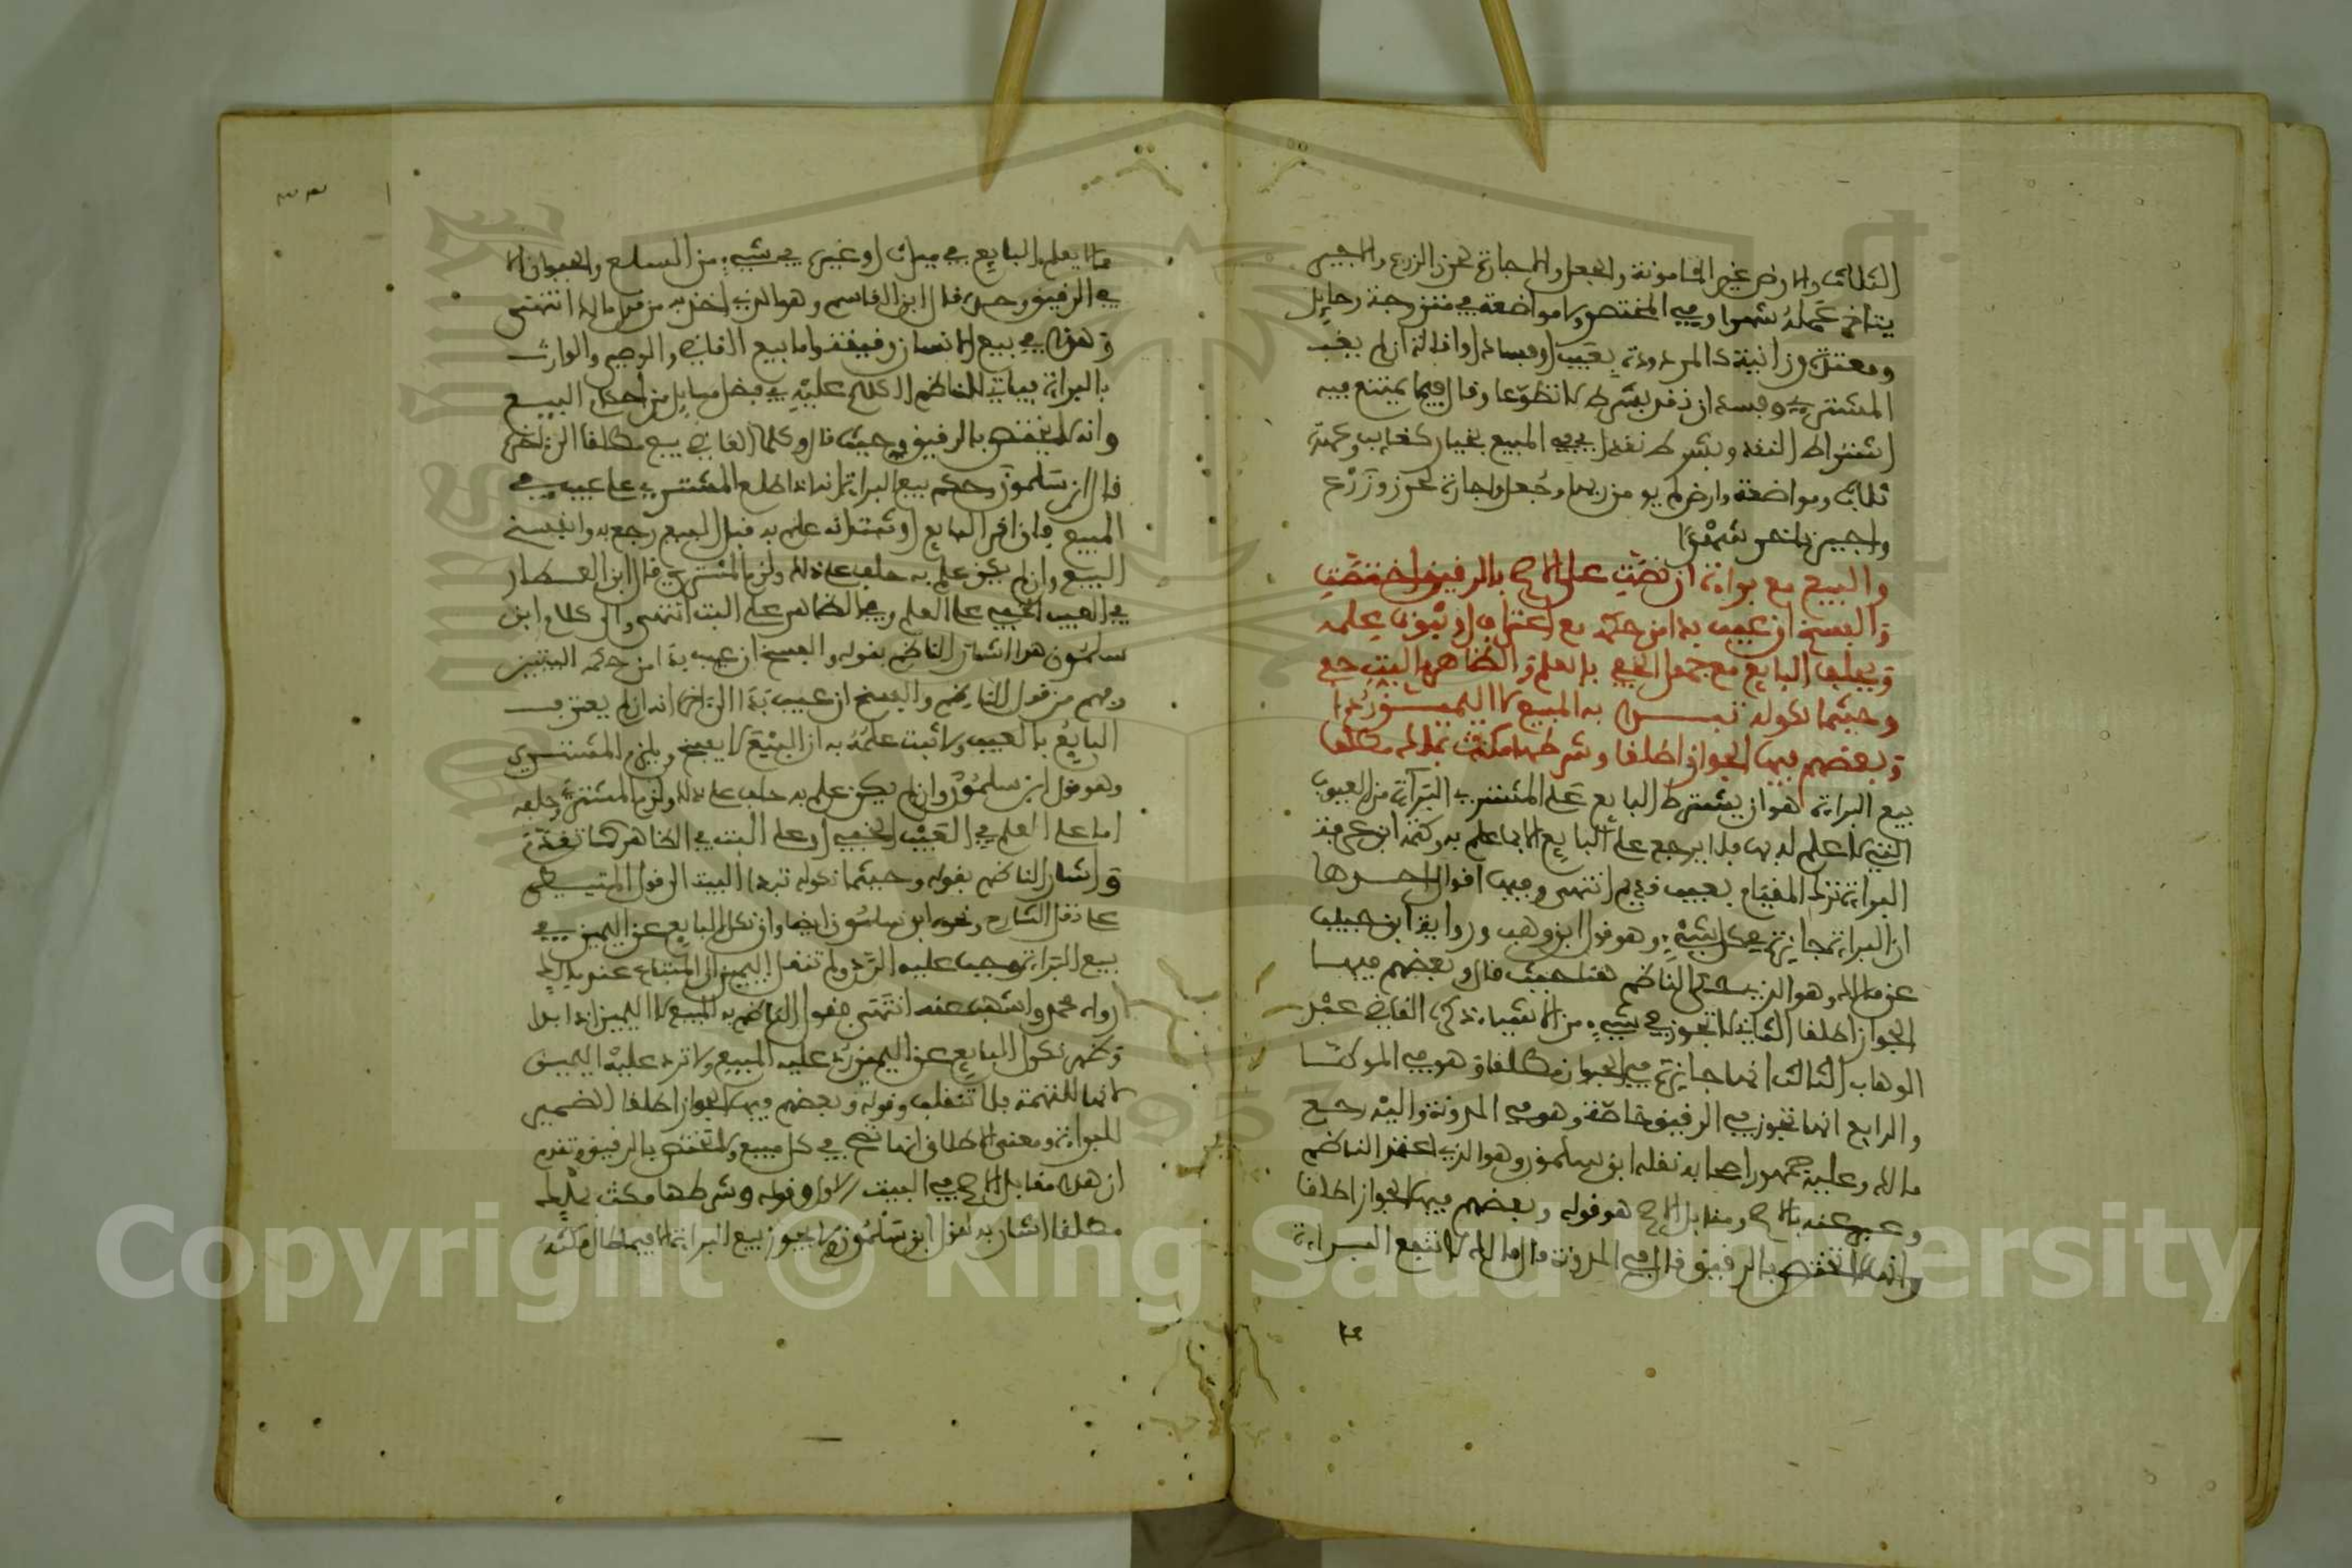 الثلاث والارض غير المامونة والجعل والاجارة لحرز الزرع والاجير
يتاخر عمله شهرا وفي المختصر ولا مواضعة في متزوجة وحامل
ومعتدة وزانية كالمردودة بعيب او فساد او اقالة ان لم يغب
المشتري وفسد ان نقد بشرط لا تطوعا وقال فيما يمتنع فيه
اشتراط النقد وبشرط نقد المبيع بخيار كغايب وعهدة
ثلاث ومواضعة وارض لم يومن ريها وجعل واجارة لحرز وزرع
واجير تاخر شهرا
والبيع مع براءة ان نصت على الاصح بالرقيق اختصت
والفسخ ان عيب بدا من حكمه مع اعتراف او ثبوت علمه
ويحلف البايع مع جهل الخفي بالعلم والظاهر بالبت حفي
وحيثما نكوله تبدى به المبيع لا اليمين ردا
وبعضهم فيها الجواز اطلقا وشرطها مكث بملك مطلقا
بيع البراءة هو ان يشترط البايع على المشتري البراءة من العيوب
التي لا علم له بها فلا يرجع على البايع الا بما علم به وكتمه ابن عرفة
البراءة ترك القيام بعيب قديم انتهى وفيها اقوال احدها
ان البراءة جايزة في كل شيء وهو قول ابن وهب ورواية ابن حبيب
عن مالك وهو الذي الناظم حيث قال وبعضهم فيها
الجواز اطلقا الثاني لا تجوز في شيء من الاشياء ذكره القاضي عبد
الوهاب الثالث انها جايزة في الحيوان مطلقا وهو في الموطا
والرابع انها تجوز في الرقيق خاصة وهو في المدونة واليه رجع
مالك وعليه جمهور اصحابه نقله ابن سلمون وهو الذي الناظم
وعبر عنه بالاصح ومقابل الاصح هو قوله وبعضهم فيها الجواز اطلقا
وانها لا تختص بالرقيق قال في المدونة قال مالك لا تنفع البراءة
مما
٣٣
مما لا يعلم البايع في ميراث او غيره في شيء من السلع والحيوان الا
في الرقيق وحده قال ابن القاسم وهو الذي اخذ به من قول مالك انتهى
وهذا في بيع الانسان رقيقه واما بيع القاضي والوصي والوارث
بالبراءة فياتي للناظم الكلام عليه في فصل مسايل من احكام البيع
وانه لا يختص بالرقيق حيث قال وكلما القاضي يبيع مطلقا الى اخره
قال ابن سلمون وحكم بيع البراءة انه اذا اطلع المشتري على عيب في
المبيع فان اقر البايع او ثبت انه علم به قبل البيع رجع به وانفسخ
البيع وان لم يكن علم به حلف على ذلك ولزم المشتري قال ابن العطار
في العيب الخفي على العلم وفي الظاهر على البت انتهى والى كلام ابن
سلمون هذا اشار الناظم بقوله والفسخ ان عيب بدا من حكمه البيتين
وفهم من قول الناظم والفسخ ان عيب بدا الى اخره انه ان لم يعترف
البايع بالعيب ولا ثبت علمه به ان البيع لا يفسخ ويلزم المشتري
وهو قول ابن سلمون وان لم يكن علم به حلف على ذلك ولزم المشتري وحلفه
اما على العلم في العيب الخفي او على البت في الظاهر كما تقدم
واشار الناظم بقوله وحيثما نكوله تبدا البيت الى قول المتيطي
على نقل الشارح ونحوه ابن سلمون ايضا وان نكل البايع عن اليمين في
بيع البراءة وجب عليه الرد ولم تنقل اليمين الى المبتاع عند مالك
رواه محمد واشهب عنه انتهى فقول الناظم به المبيع لا اليمين اذا بدا
وظهر نكول البايع عن اليمين رد عليه المبيع ولا ترد عليه اليمين
لانها للتهمة فلا تنقلب وقوله وبعضهم فيها الجواز اطلقا الضمير
للبراءة ومعنى الاطلاق انها تصح في كل مبيع ولا تختص بالرقيق وتقدم
ان هذا مقابل الاصح في البيت الاول وقوله وشرطها مكث بملك
مطلقا اشار به لقول ابن سلمون لا يجوز بيع البراءة الا فيما طال مكثه
Copyright © King Saud University